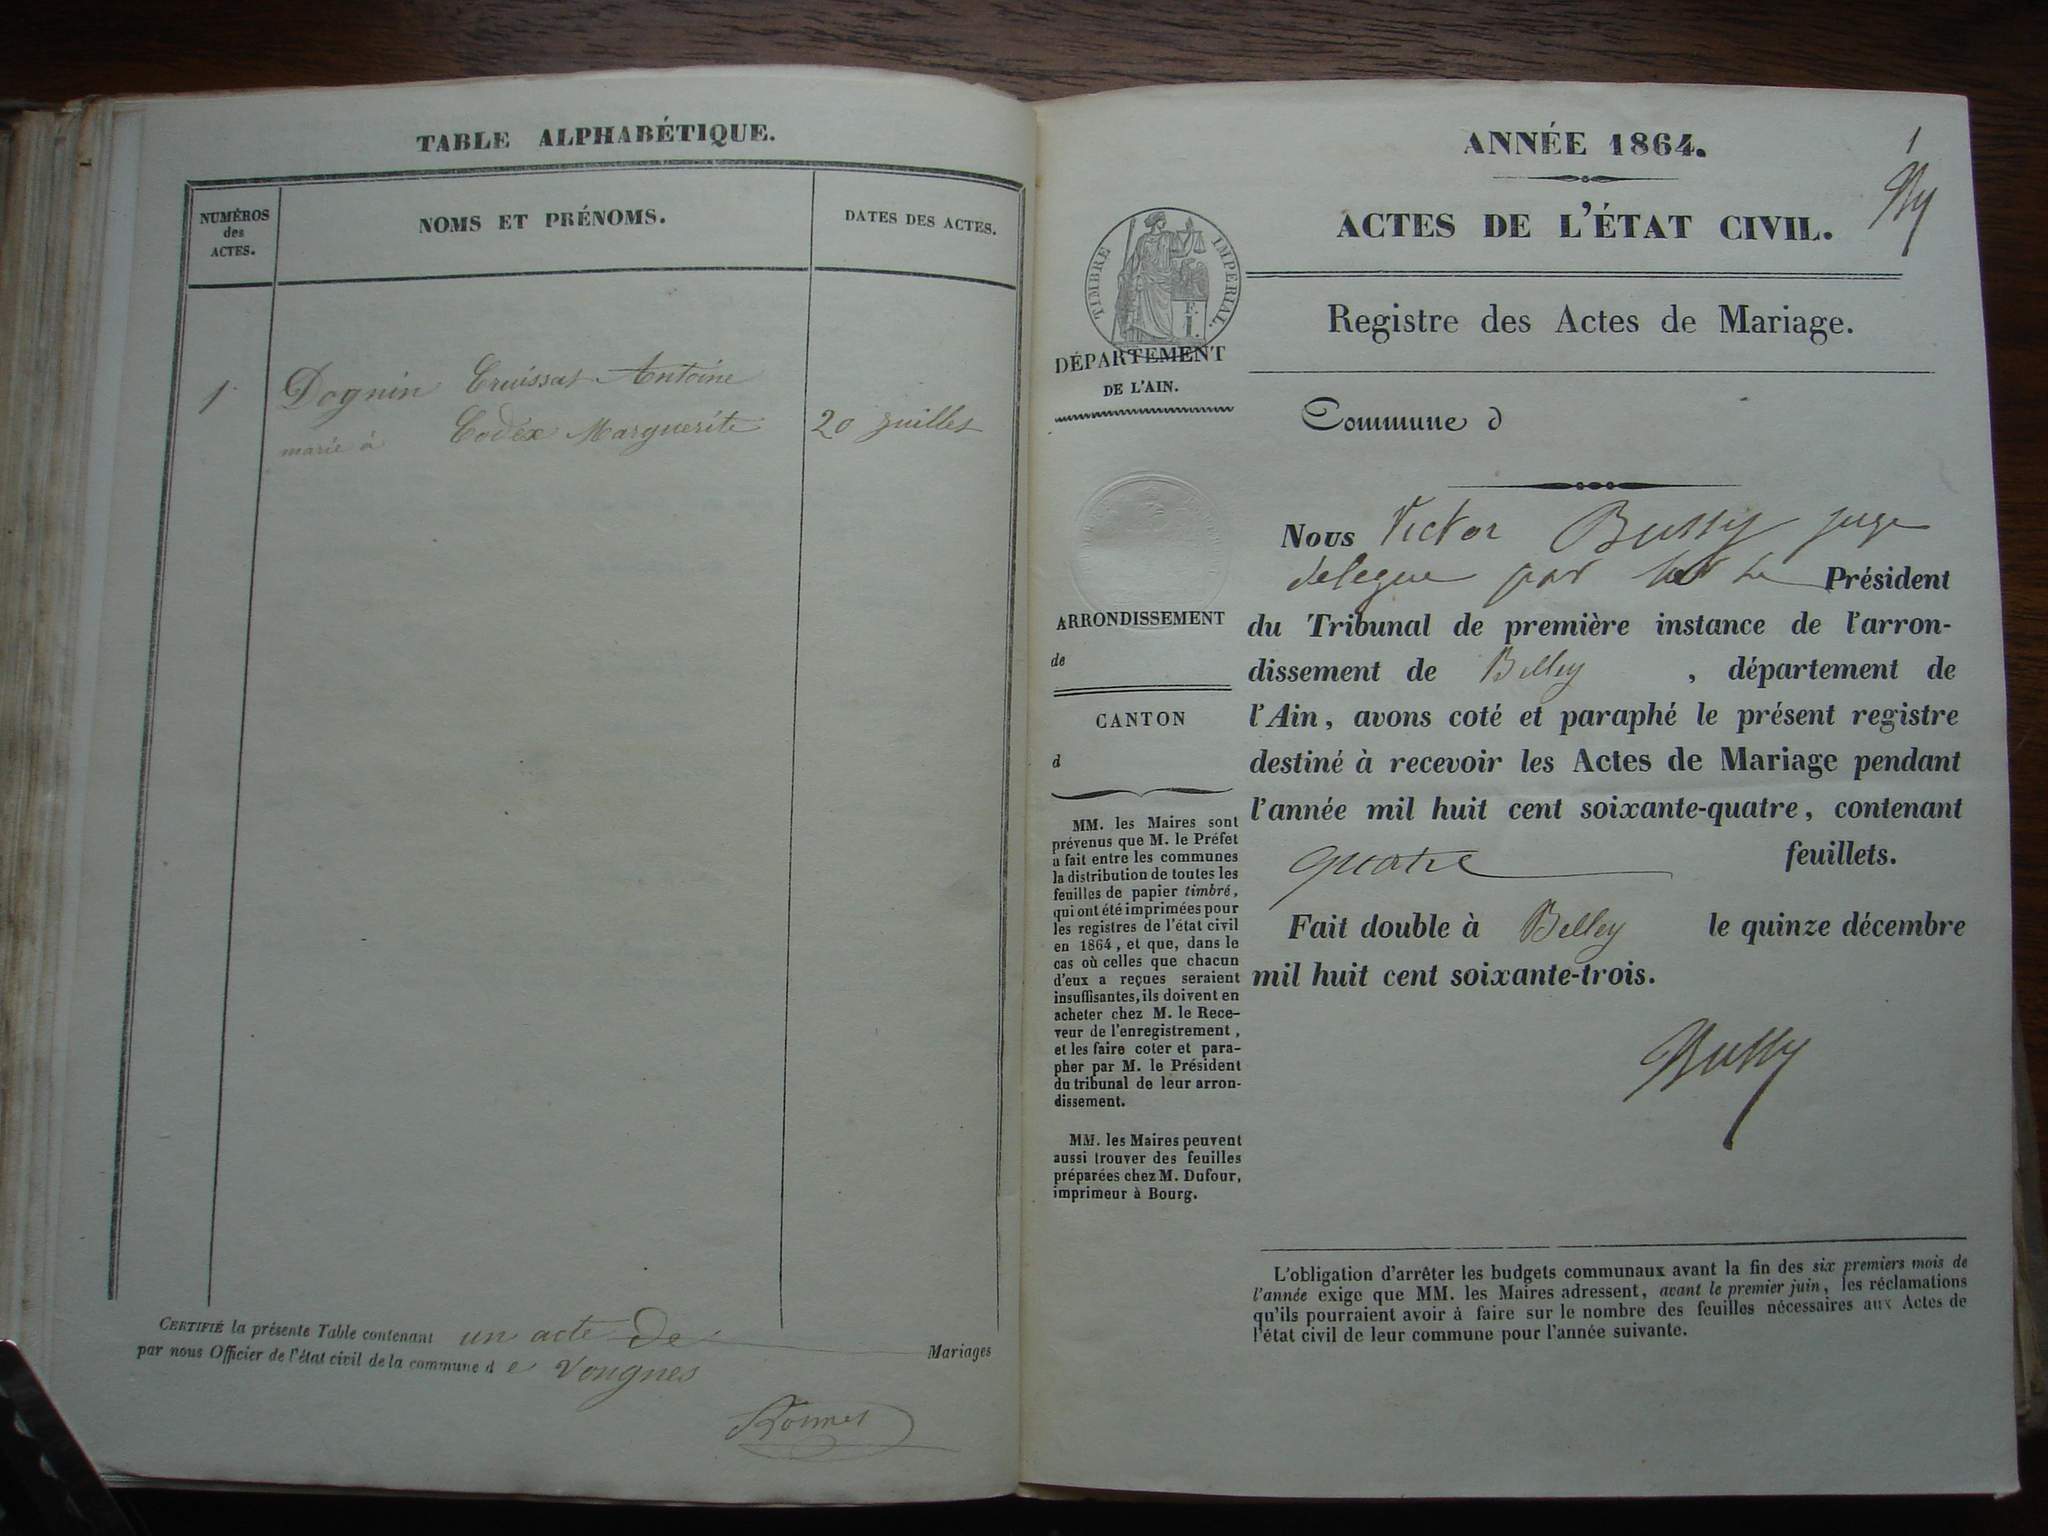 TABLE ALPHABÉTIQUE.
NUMÉROS
des
ACTES.
NOMS ET PRÉNOMS.
DATES DES ACTES.
1
Dognin Cruissat Antoine
marié à Codex Marguerite
20 juillet
CERTIFIÉ la présente Table contenant un acte de Mariages
par nous Officier de l'état civil de la commune d e Vongnes
Bonnet
1
ANNÉE 1864.
ACTES DE L'ÉTAT CIVIL.
TIMBRE IMPÉRIAL.
Registre des Actes de Mariage.
DÉPARTEMENT
DE L'AIN.
Commune d
ARRONDISSEMENT
de
CANTON
d
MM. les Maires sont
prévenus que M. le Préfet
a fait entre les communes
la distribution de toutes les
feuilles de papier timbré,
qui ont été imprimées pour
les registres de l'état civil
en 1864, et que, dans le
cas où celles que chacun
d'eux a reçues seraient
insuffisantes, ils doivent en
acheter chez M. le Rece-
veur de l'enregistrement,
et les faire coter et para-
pher par M. le Président
du tribunal de leur arron-
dissement.
MM. les Maires peuvent
aussi trouver des feuilles
préparées chez M. Dufour,
imprimeur à Bourg.
Nous Victor Bussy juge
delegue par Le Président
du Tribunal de première instance de l'arron-
dissement de Belley , département de
l'Ain, avons coté et paraphé le présent registre
destiné à recevoir les Actes de Mariage pendant
l'année mil huit cent soixante-quatre, contenant
quatre feuillets.
Fait double à Belley le quinze décembre
mil huit cent soixante-trois.
Bussy
L'obligation d'arrêter les budgets communaux avant la fin des six premiers mois de
l'année exige que MM. les Maires adressent, avant le premier juin, les réclamations
qu'ils pourraient avoir à faire sur le nombre des feuilles nécessaires aux Actes de
l'état civil de leur commune pour l'année suivante.